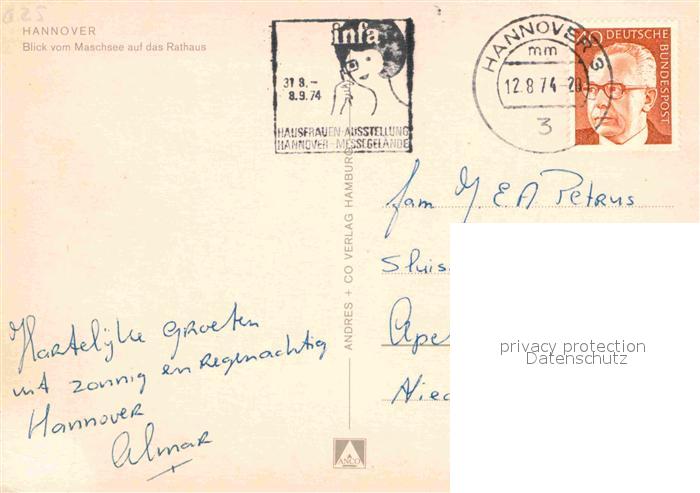 HANNOVER
Blick vom Maschsee auf das Rathaus
infa
31 8.–
8.9.74
HAUSFRAUEN-AUSSTELLUNG
HANNOVER-MESSEGELÄNDE
HANNOVER 3
mm
12.8.74-20
3
40 DEUTSCHE
BUNDESPOST
fam M. E A Petrus
Sluis
Ape
Nied
Hartelijke Groeten
uit zonnig en regenachtig
Hannover
Almar
ANDRES + CO VERLAG HAMBURG
ANCO
privacy protection
Datenschutz